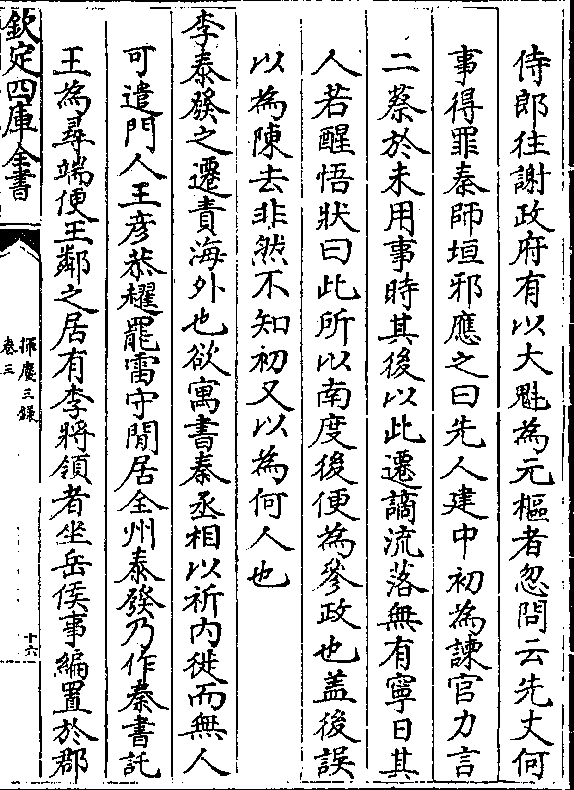 侍郎往謝政府有以大魁為元樞者忽問云先丈何
事得罪秦師垣邪應之曰先人建中初為諫官力言
二蔡於未用事時其後以此遷謫流落無有寧日其
人若醒悟狀曰此所以南度後便為參政也盖後誤
以為陳去非然不知初又以為何人也
李泰發之遷責海外也欲寓書秦丞相以祈內徙而無人
可遣門人王彦恭趯罷雷守閒居全州泰發乃作秦書託
王為尋端便王鄰之居有李將領者坐岳侯事編置於郡
欽定四庫全書
揮麈三錄
卷三
十六